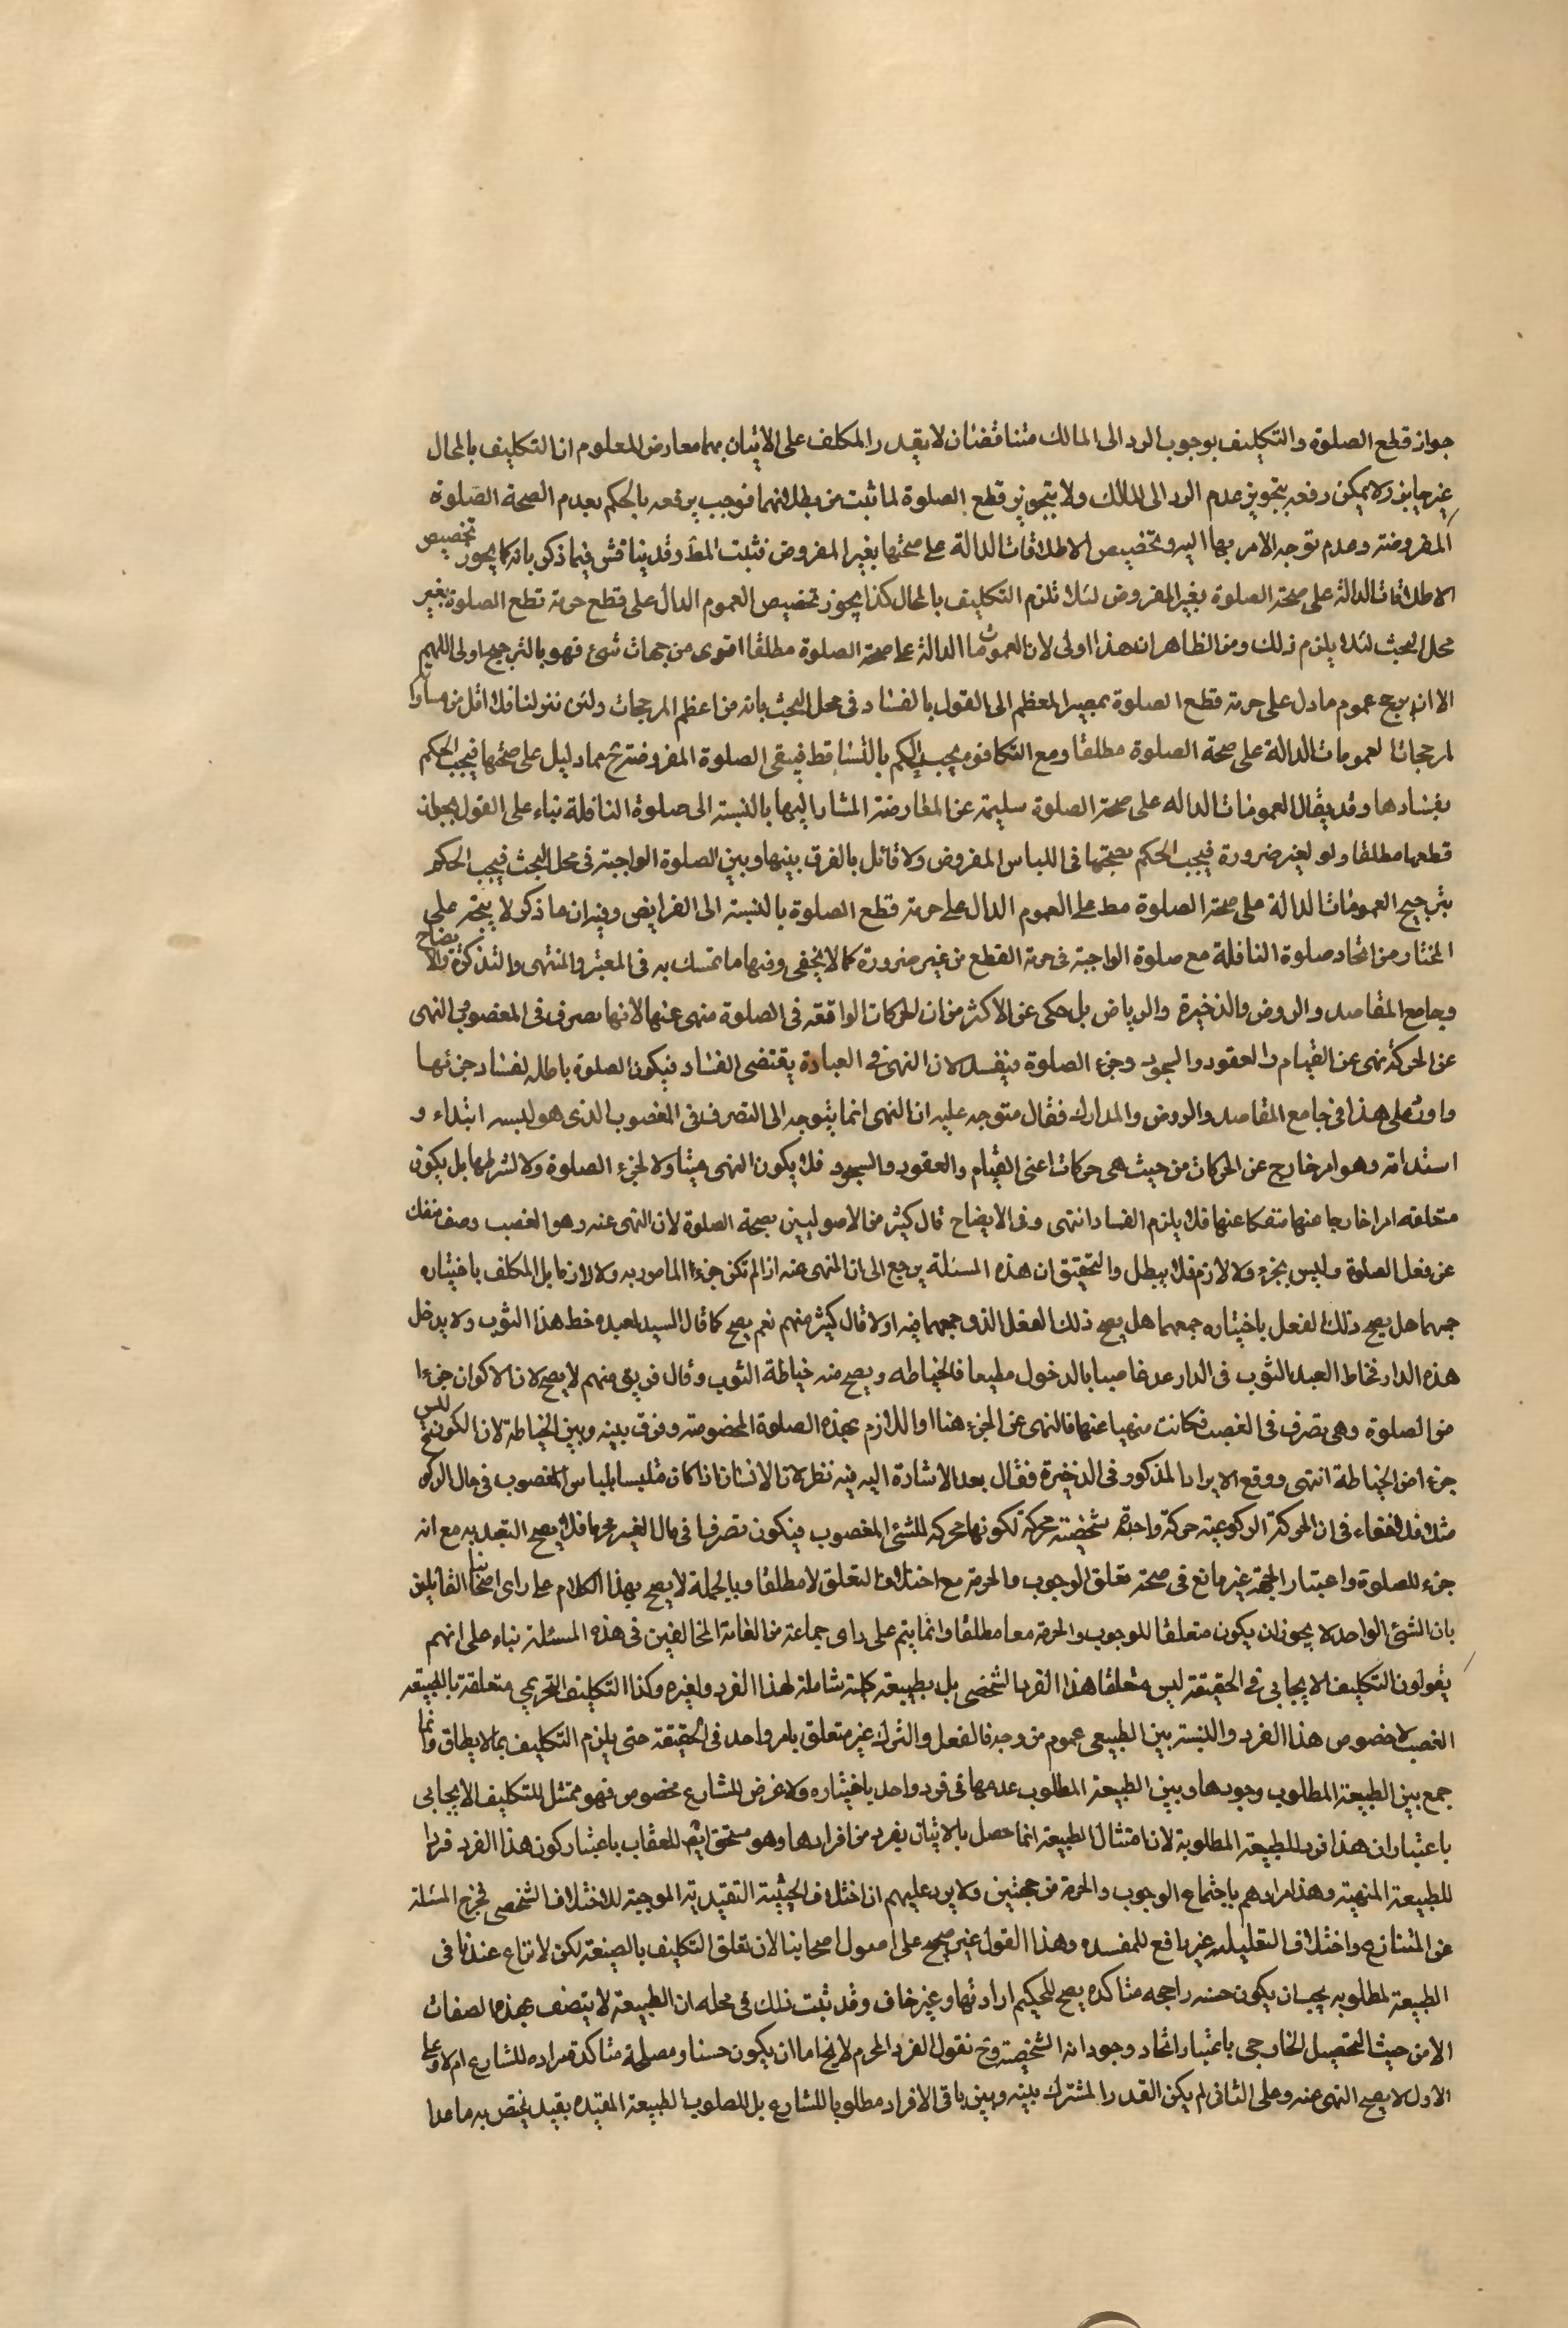 جواز قطع الصلوة والتكليف بوجوب الرد الى المالك متناقضان لا يقدر المكلف على الاتيان بهما معا ومن المعلوم ان التكليف بالمحال
غير جايز ولا يمكن دفعه بتجويز عدم الرد الى المالك ولا بتجويز قطع الصلوة لما ثبت من بطلانهما فوجب رفعه بالحكم بعدم الصحة الصلوة
المفروضة وعدم توجه الامر بها اليه وتخصيص الاطلاقات الدالة على صحتها بغير المفروض فثبت المط وقد يناقش فيما ذكر بانه كما يجوز تخصيص
الاطلاقات الدالة على صحة الصلوة بغير المفروض لئلا تلزم التكليف بالمحال كذا يجوز تخصيص العموم الدال على قطع حرمة قطع الصلوة بغير
محل البحث لئلا يلزم ذلك ومن الظاهر ان هذا اولى لان العمومات الدالة على صحة الصلوة مطلقا اقوى من جهات شتى فهو بالترجيح اولى اللهم
الا ان يرجح عموم ما دل على حرمة قطع الصلوة بمصير المعظم الى القول بالفساد فى محل البحث بانه من اعظم المرجحات ولئن تنزلنا فلا اقل من مساواته
لمرجحات العمومات الدالة على صحة الصلوة مطلقا ومع التكافؤ يجب الحكم بالتساقط فيبقى الصلوة المفروضة ح مما دليل على صحتها فيجب الحكم
بفسادها وقد يقال العمومات الداله على صحة الصلوة سليمة عن المعارضة المشار اليها بالنسبة الى صلوة النافلة بناء على القول بجواز
قطعها مطلقا ولو لغير ضرورة فيجب الحكم بصحتها فى اللباس المفروض ولا قائل بالفرق بينها وبين الصلوة الواجبة فى محل البحث فيجب الحكم
بترجيح العمومات الدالة على صحة الصلوة مط على العموم الدال على حرمة قطع الصلوة بالنسبة الى الفرايض وفيه ان ما ذكر لا يتجه على
المختار من اتحاد صلوة النافلة مع صلوة الواجبة فى حرمة القطع من غير ضرورة كما لا يخفى ومنها ما تمسك به فى المعتبر والمنتهى والتذكرة والايضاح
وجامع المقاصد والروض والذخيرة والرياض بل حكى عن الاكثر من ان الحركات الواقعة فى الصلوة منهى عنها لانها تصرف فى المغصوب والنهى
عن الحركة نهى عن القيام والعقود والسجود وجزء الصلوة فيفسد لان النهى فى العبادة يقتضى الفساد فيكون الصلوة باطلة لفساد جزئها
واورد على هذا فى جامع المقاصد والروض والمدارك فقال متوجه عليه ان النهى انما يتوجه الى التصرف فى المغصوب الذى هو لبسه ابتداء و
استدامة وهو امر خارج عن الحركات من حيث هى حركات اعنى القيام والعقود والسجود فلا يكون النهى متناولا لجزء الصلوة ولا لشرطها بل يكون
متعلقه امرا خارجا عنها منفكا عنها فلا يلزم الفساد انتهى وفى الايضاح قال كثير من الاصوليين بصحة الصلوة لان النهى عنه وهو الغصب وصف منفك
عن فعل الصلوة وليس بجزء ولا لازم فلا يبطل والتحقيق ان هذه المسئلة يرجع الى ان المنهى عنه اذا لم تكن جزءا المامور به ولا لازما بل المكلف باختياره
جمعهما هل يصح ذلك الفعل باختياره جمعهما هل يصح ذلك الفعل الذى جمعهما فيه اولا قال كثير منهم نعم يصح كما قال السيد لعبده خط هذا الثوب ولا يدخل
هذه الدار فخاط العبد الثوب فى الدار عد عاصيا بالدخول مطيعا فالخياطه ويصح منه خياطة الثوب وقال فريق منهم لا يصح لان الاكوان جزءا
من الصلوة وهى تصرف فى الغصب فكانت منهيا عنها فالنهى عن الجزء هنا او اللازم بهذه الصلوة المخصوصة وفرق بينه وبين الخياطة لان الكون ليس
جزءا من الخياطة انتهى ووقع الايراد المذكور فى الذخيرة فقال بعد الاشادة اليه فيه نظر لان الانسان اذا كان متلبسا بلباس المغصوب فى حال الركوع
مثلا فلا خفاء فى ان الحركة الركوعية حركة واحدة شخصية محركة لكونها محركة للشئ المغصوب فيكون تصرفا فى مال الغير محرما فلا يصح التعبد به مع انه
جزء للصلوة واعتبار الجهة غير مانع فى صحة تعلق الوجوب والحرمة مع اختلاف المتعلق لا مطلقا وبالجملة لا يصح بهذا الكلام على راى اصحابنا القايلين
بان الشئ الواحد لا يجوز ان يكون متعلقا للوجوب والحرمة معا مطلقا وانما يتم على راى جماعة من العامة المخالفين فى هذه المسئلة بناء على انهم
يقولون التكليف الايجابى فى الحقيقة ليس متعلقا هذا الفرد الشخصى بل بطبيعة كلية شاملة لهذا الفرد ولغيره وكذا التكليف التحريمى متعلقة بالطبيعة
الغصب لا خصوص هذا الفرد والنسبة بين الطبيعى عموم من وجه فالفعل والترك غير متعلق بامر واحد فى الحقيقة حتى يلزم التكليف بما لا يطاق وانما
جمع بين الطبيعة المطلوب وجودها وبين الطبيعة المطلوب عدمها فى فرد واحد باختياره ولا غرض للشارع مخصوص فهو ممتثل للتكليف الايجابى
باعتبار ان هذا فرد للطبيعة المطلوبة لان امتثال الطبيعة انما حصل بالاتيان بفرد من افرادها وهو مستحق ايضا للعقاب باعتبار كون هذا الفرد فردا
للطبيعة المنهية وهذا مرادهم باجتماع الوجوب والحرمة من جهتين ولا يرد عليهم ان اختلاف الحيثية التقييدية الموجبة للاختلاف الشخصى تخرج المسئلة
عن المتنازع واختلاف التعليلية غير رافع للمفسده وهذا القول غير صحيح على اصول اصحابنا لان تعلق التكليف بالصيغة لكن لا نزاع عندنا فى
الطبيعة المطلوبه يجب ان يكون حسنه راجحه متاكده يصح للحكيم ارادتها وغير خاف وقد ثبت ذلك فى محله ان الطبيعة لا يتصف بهذه الصفات
الا من حيث التحصيل الخارجى باعتبار اتحاد وجود انه الشخصية وح نقول الفرد المحرم لا يخ اما ان يكون حسنا ومصلحة متاكدة مراده للشارع ام لا وعلى
الاول لا يصح النهى عنه وعلى الثانى لم يكن القدر المشترك بينه وبين باقى الافراد مطلوبا للشارع بل المطلوب الطبيعة المقيده بقيد يختص به ما عدا